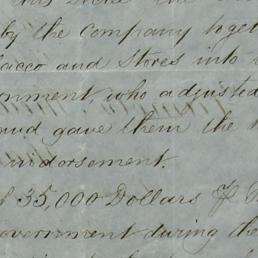 by the company toget
acco and stores into
rnment, who adjusted
and gave them the
indorsement.
35,000 Dollars
government during the